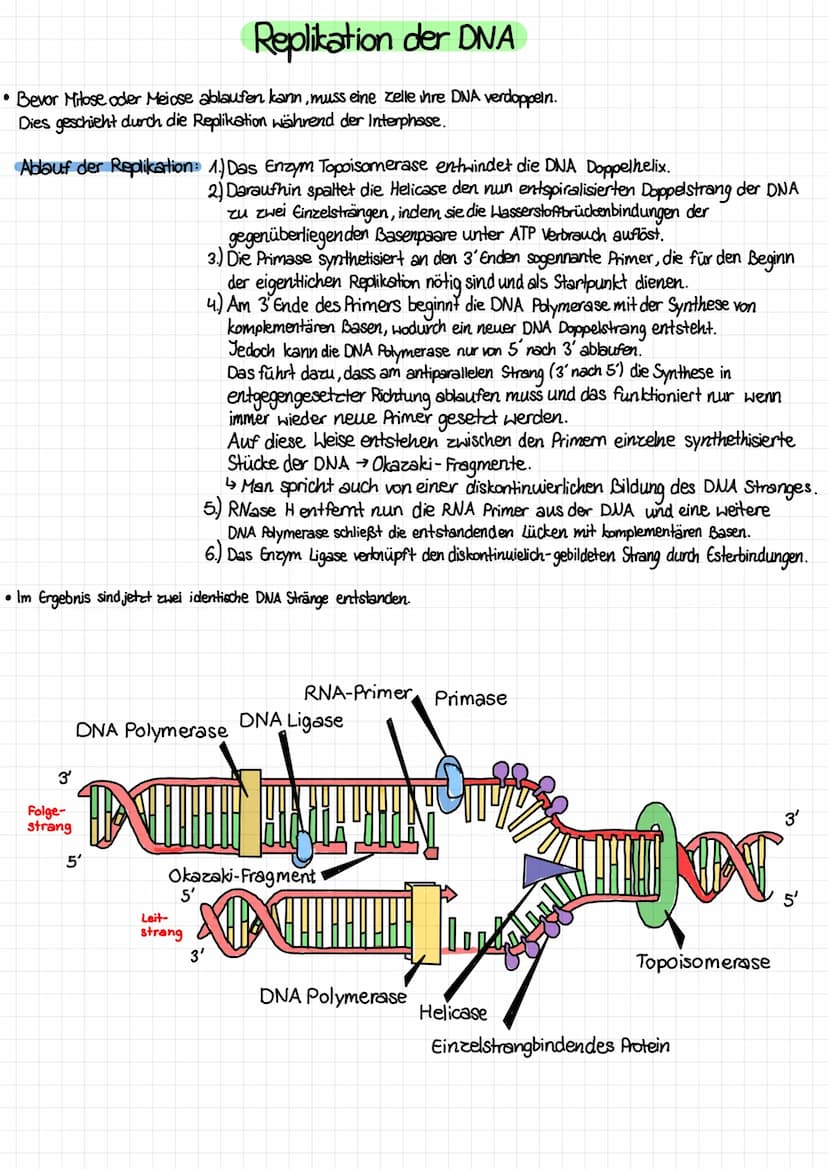 Replikation der DNA
• Bevor Mitose oder Meiose ablaufen kann, muss eine zelle ihre DNA verdoppeln.
Dies geschieht durch die Replikation während der Interphase.
Ablauf der Replikation: 1.) Das Enzym Topoisomerase entwindet die DNA Doppelhelix.
2.) Daraufhin spaltet die Helicase den nun entspiralisierten Doppelstrang der DNA
zu zwei Einzelsträngen, indem sie die Wasserstoffbrückenbindungen der
gegenüberliegenden Basenpaare unter ATP Verbrauch auflöst.
3.) Die Primase synthetisiert an den 3' Enden sogennante Primer, die für den Beginn
der eigentlichen Replikation nötig sind und als Startpunkt dienen.
4.) Am 3' Ende des Primers beginnt die DNA Polymerase mit der Synthese von
komplementären Basen, wodurch ein neuer DNA Doppelstrang entsteht.
Jedoch kann die DNA Polymerase nur von 5' nach 3' ablaufen.
Das führt dazu, dass am antiparallelen Strang (3' nach 5') die Synthese in
entgegengesetzter Richtung ablaufen muss und das funktioniert nur wenn
immer wieder neue Primer gesetzt werden.
Auf diese Weise entstehen zwischen den Primern einzelne synthethisierte
Stücke der DNA → Okazaki-Fragmente.
↳ Man spricht auch von einer diskontinuierlichen Bildung des DNA Stranges.
5.) RNase H entfernt nun die RNA Primer aus der DNA und eine weitere
DNA Polymerase schließt die entstandenden Lücken mit komplementären Basen.
6.) Das Enzym Ligase verknüpft den diskontinuielich-gebildeten Strang durch Esterbindungen.
• Im Ergebnis sind jetzt zwei identische DNA Stränge entstanden.
RNA-Primer
Primase
DNA Polymerase
DNA Ligase
3'
Folge-
strang
5'
3'
5'
Okazaki-Fragment
5'
Leit-
strang
3'
Topoisomerase
DNA Polymerase
Helicase
Einzelstrangbindendes Protein